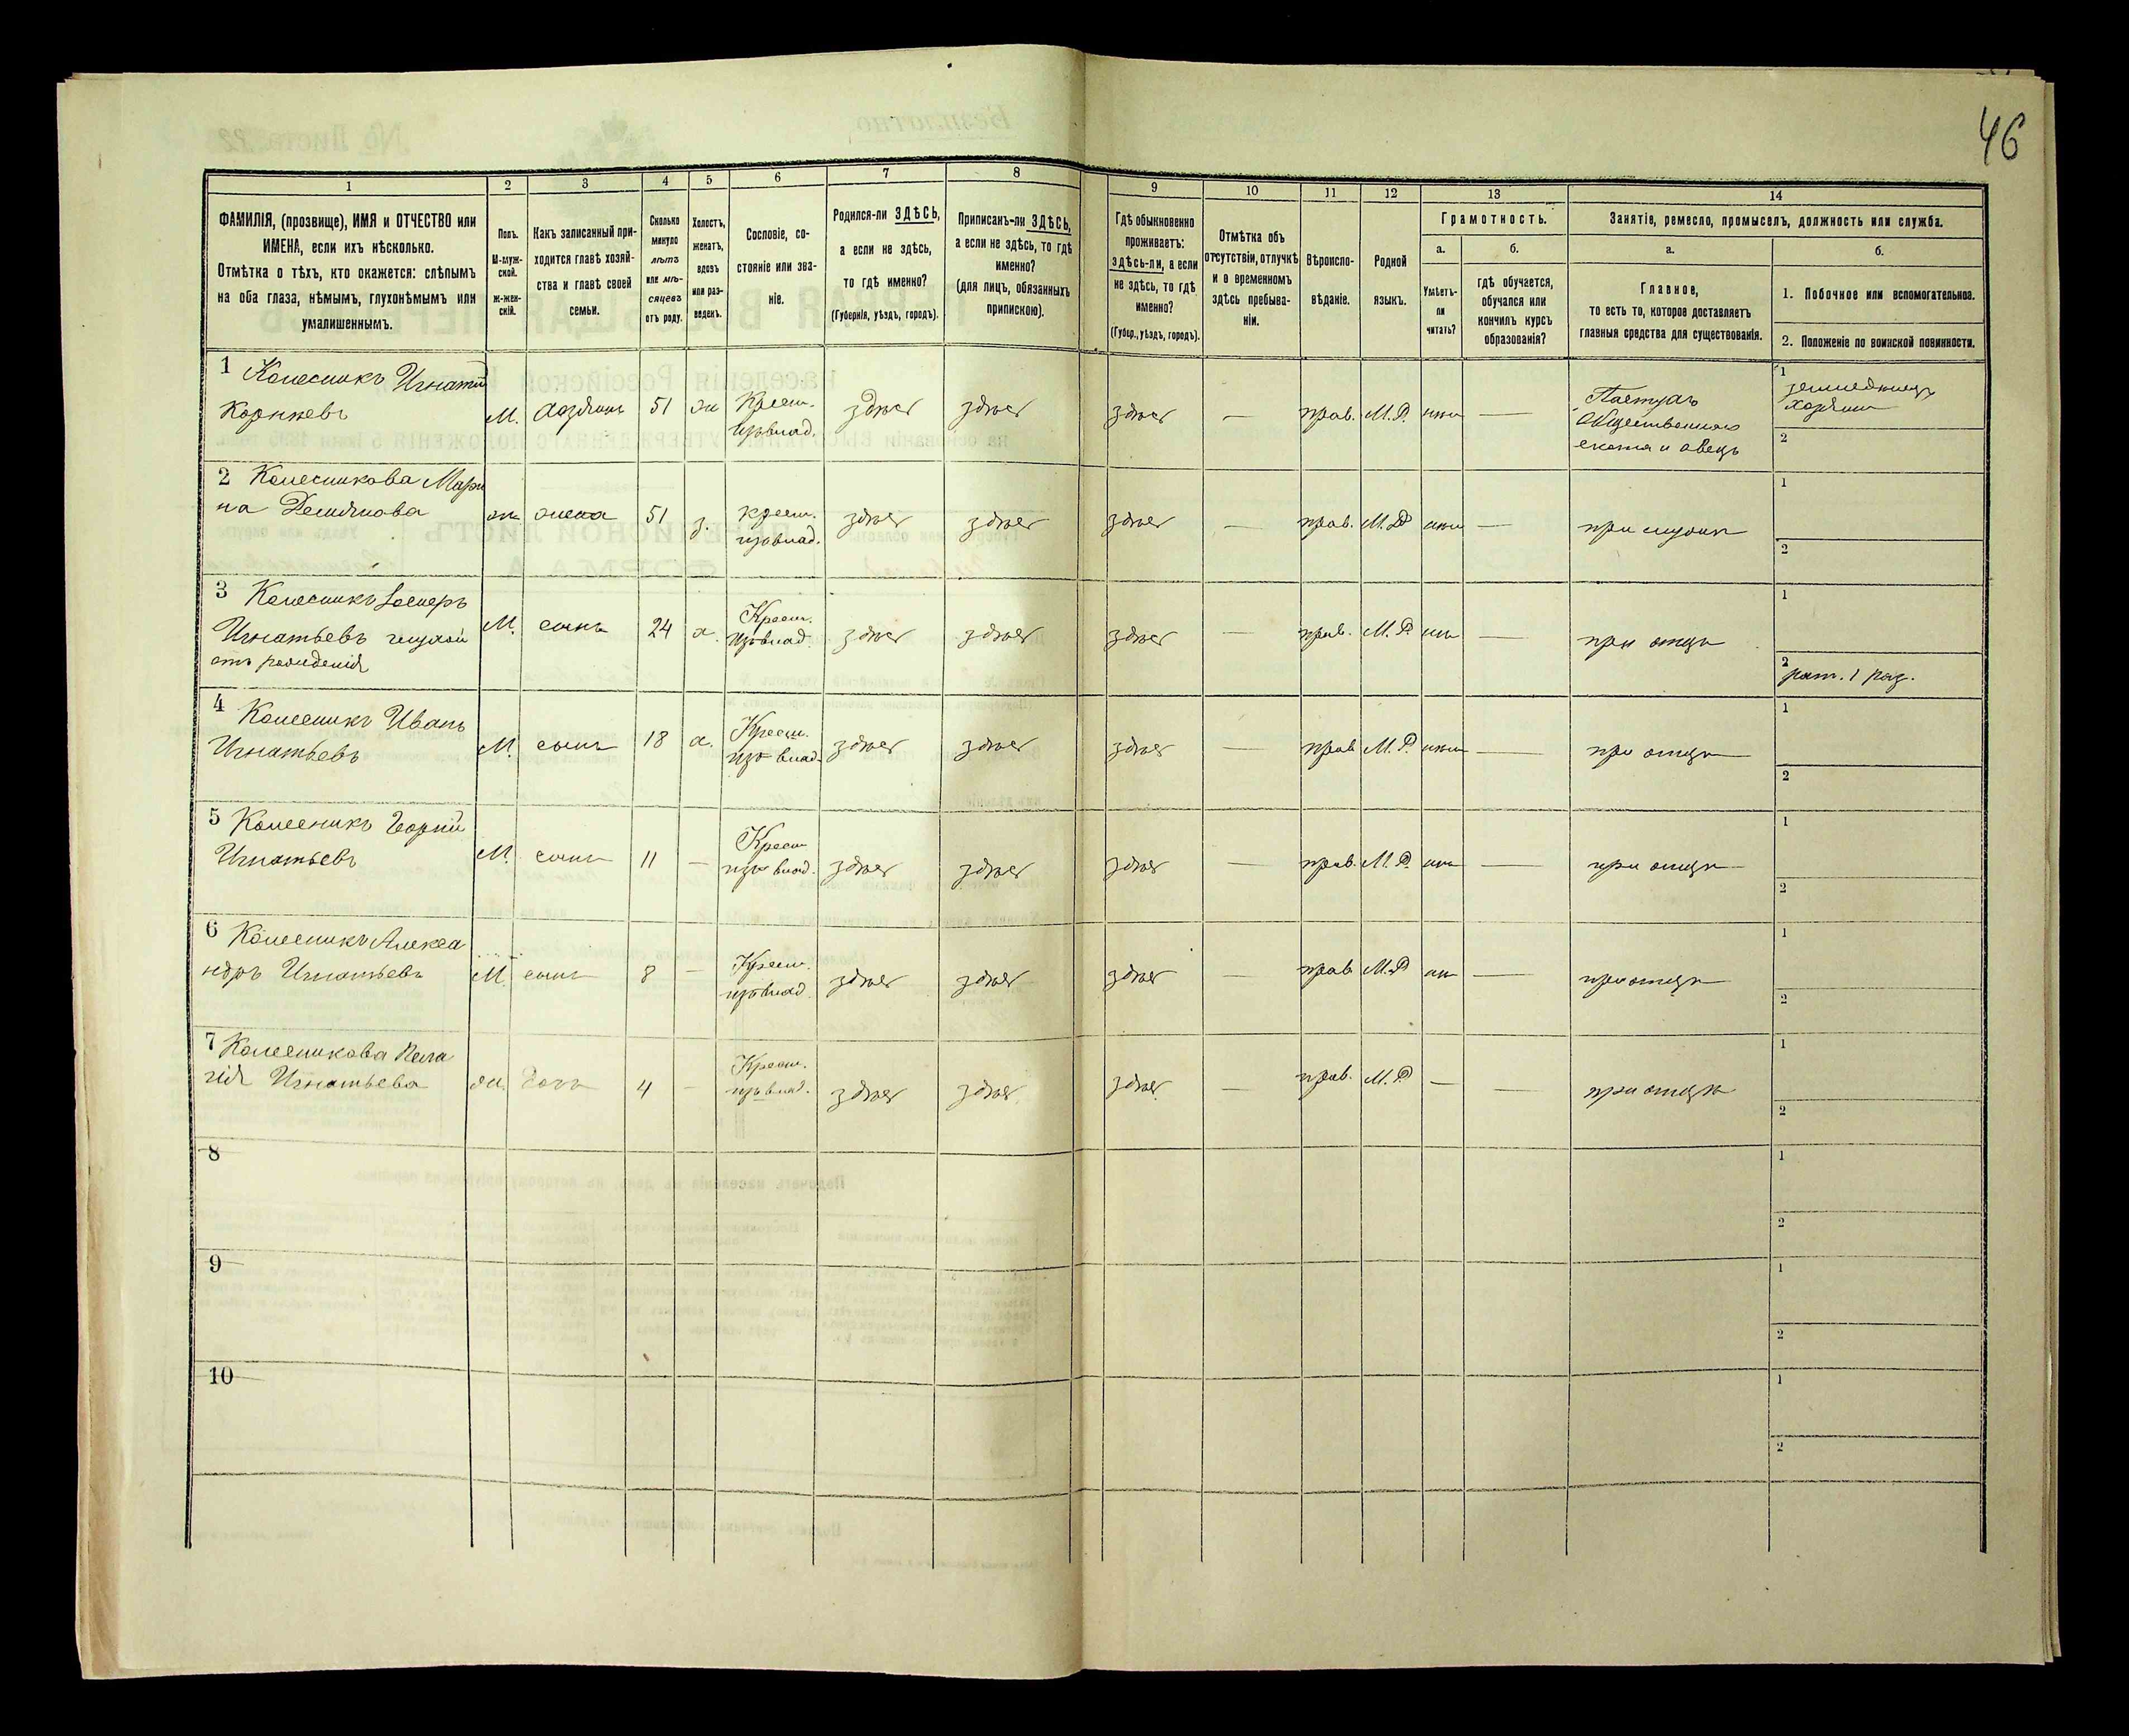 46
1
2
3
4
5
6
7
8
9
10
11
12
13
14
ФАМИЛІЯ, (прозвище), ИМЯ и ОТЧЕСТВО или
ИМЕНА, если ихъ нѣсколько.
Отмѣтка о тѣхъ, кто окажется: слѣпымъ
на оба глаза, нѣмымъ, глухонѣмымъ или
умалишеннымъ.
Полъ.
М-муж-
ской.
Ж-жен-
скій.
Какъ записанный при-
ходится главѣ хозяй-
ства и главѣ своей
семьи.
Сколько
минуло
лѣтъ
или мѣ-
сяцевъ
отъ роду.
Холостъ,
женатъ,
вдовъ
или раз-
веденъ.
Сословіе, со-
стояніе или зва-
ніе.
Родился-ли ЗДѢСЬ,
а если не здѣсь,
то гдѣ именно?
(Губернія, уѣздъ, городъ).
Приписанъ-ли ЗДѢСЬ,
а если не здѣсь, то гдѣ
именно?
(для лицъ, обязанныхъ
припискою).
Гдѣ обыкновенно
проживаетъ:
здѣсь-ли, а если
не здѣсь, то гдѣ
именно?
(Губер., уѣздъ, городъ).
Отмѣтка объ
отсутствіи, отлучкѣ
и о временномъ
здѣсь пребыва-
ніи.
Вѣроиспо-
вѣданіе.
Родной
языкъ.
Грамотность.
а.
Умѣетъ-
ли
читать?
б.
гдѣ обучается,
обучался или
кончилъ курсъ
образованія?
Занятіе, ремесло, промыселъ, должность или служба.
а.
Главное,
то есть то, которое доставляетъ
главныя средства для существованія.
б.
1. Побочное или вспомогательное.
2. Положеніе по воинской повинности.
1 Колесникъ Игнатій
Корнѣевъ
М. хозяинъ 51 ж Крест. изъ влад. здѣсь здѣсь здѣсь — прав. М.Р. нѣтъ —
Пастухъ
общественнаго
скота и овецъ
1 земледѣлецъ
хозяинъ
2
2 Колесникова Мари
на Демьянова
ж жена 51 з. крест. изъ влад. здѣсь здѣсь здѣсь — прав. М.Р. нѣтъ — при мужѣ
1
2
3 Колесникъ
Игнатьевъ глухой
отъ рожденія
М. сынъ 24 х. Крест. изъ влад. здѣсь здѣсь здѣсь — прав. М.Р. нѣтъ — при отцѣ
1
2 рат. 1 раз.
4 Колесникъ Иванъ
Игнатьевъ
М. сынъ 18 х. Крест. изъ влад. здѣсь здѣсь здѣсь — прав. М.Р. нѣтъ — при отцѣ
1
2
5 Колесникъ
Игнатьевъ
М. сынъ 11 — Крест. изъ влад. здѣсь здѣсь здѣсь — прав. М.Р. нѣтъ — при отцѣ
1
2
6 Колесникъ Алекса
ндръ Игнатьевъ
М. сынъ 8 — Крест. изъ влад. здѣсь здѣсь здѣсь — прав. М.Р. нѣтъ — при отцѣ
1
2
7 Колесникова Пела
гія Игнатьева
ж. дочь 4 — Крест. изъ влад. здѣсь здѣсь здѣсь — прав. М.Р. — — при отцѣ
1
2
8
1
2
9
1
2
10
1
2